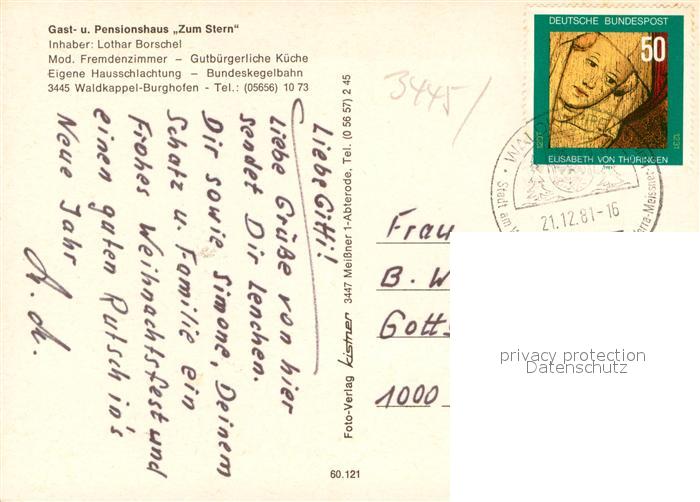 Gast- u. Pensionshaus „Zum Stern“
Inhaber: Lothar Borschel
Mod. Fremdenzimmer – Gutbürgerliche Küche
Eigene Hausschlachtung – Bundeskegelbahn
3445 Waldkappel-Burghofen - Tel.: (05656) 10 73
Liebe Gitti!
Liebe Grüße von hier
sendet Dir Lenchen.
Dir sowie Simone, Deinem
Schatz u. Familie ein
Frohes Weihnachtsfest und
einen guten Rutsch in's
Neue Jahr
Foto-Verlag kistner 3447 Meißner 1-Abterode, Tel. (0 56 57) 2 45
60.121
3445/
DEUTSCHE BUNDESPOST
50
1207
1231
ELISABETH VON THÜRINGEN
Stadt am
21.12.81-16
Frau
B. W
Gott
1000
privacy protection
Datenschutz